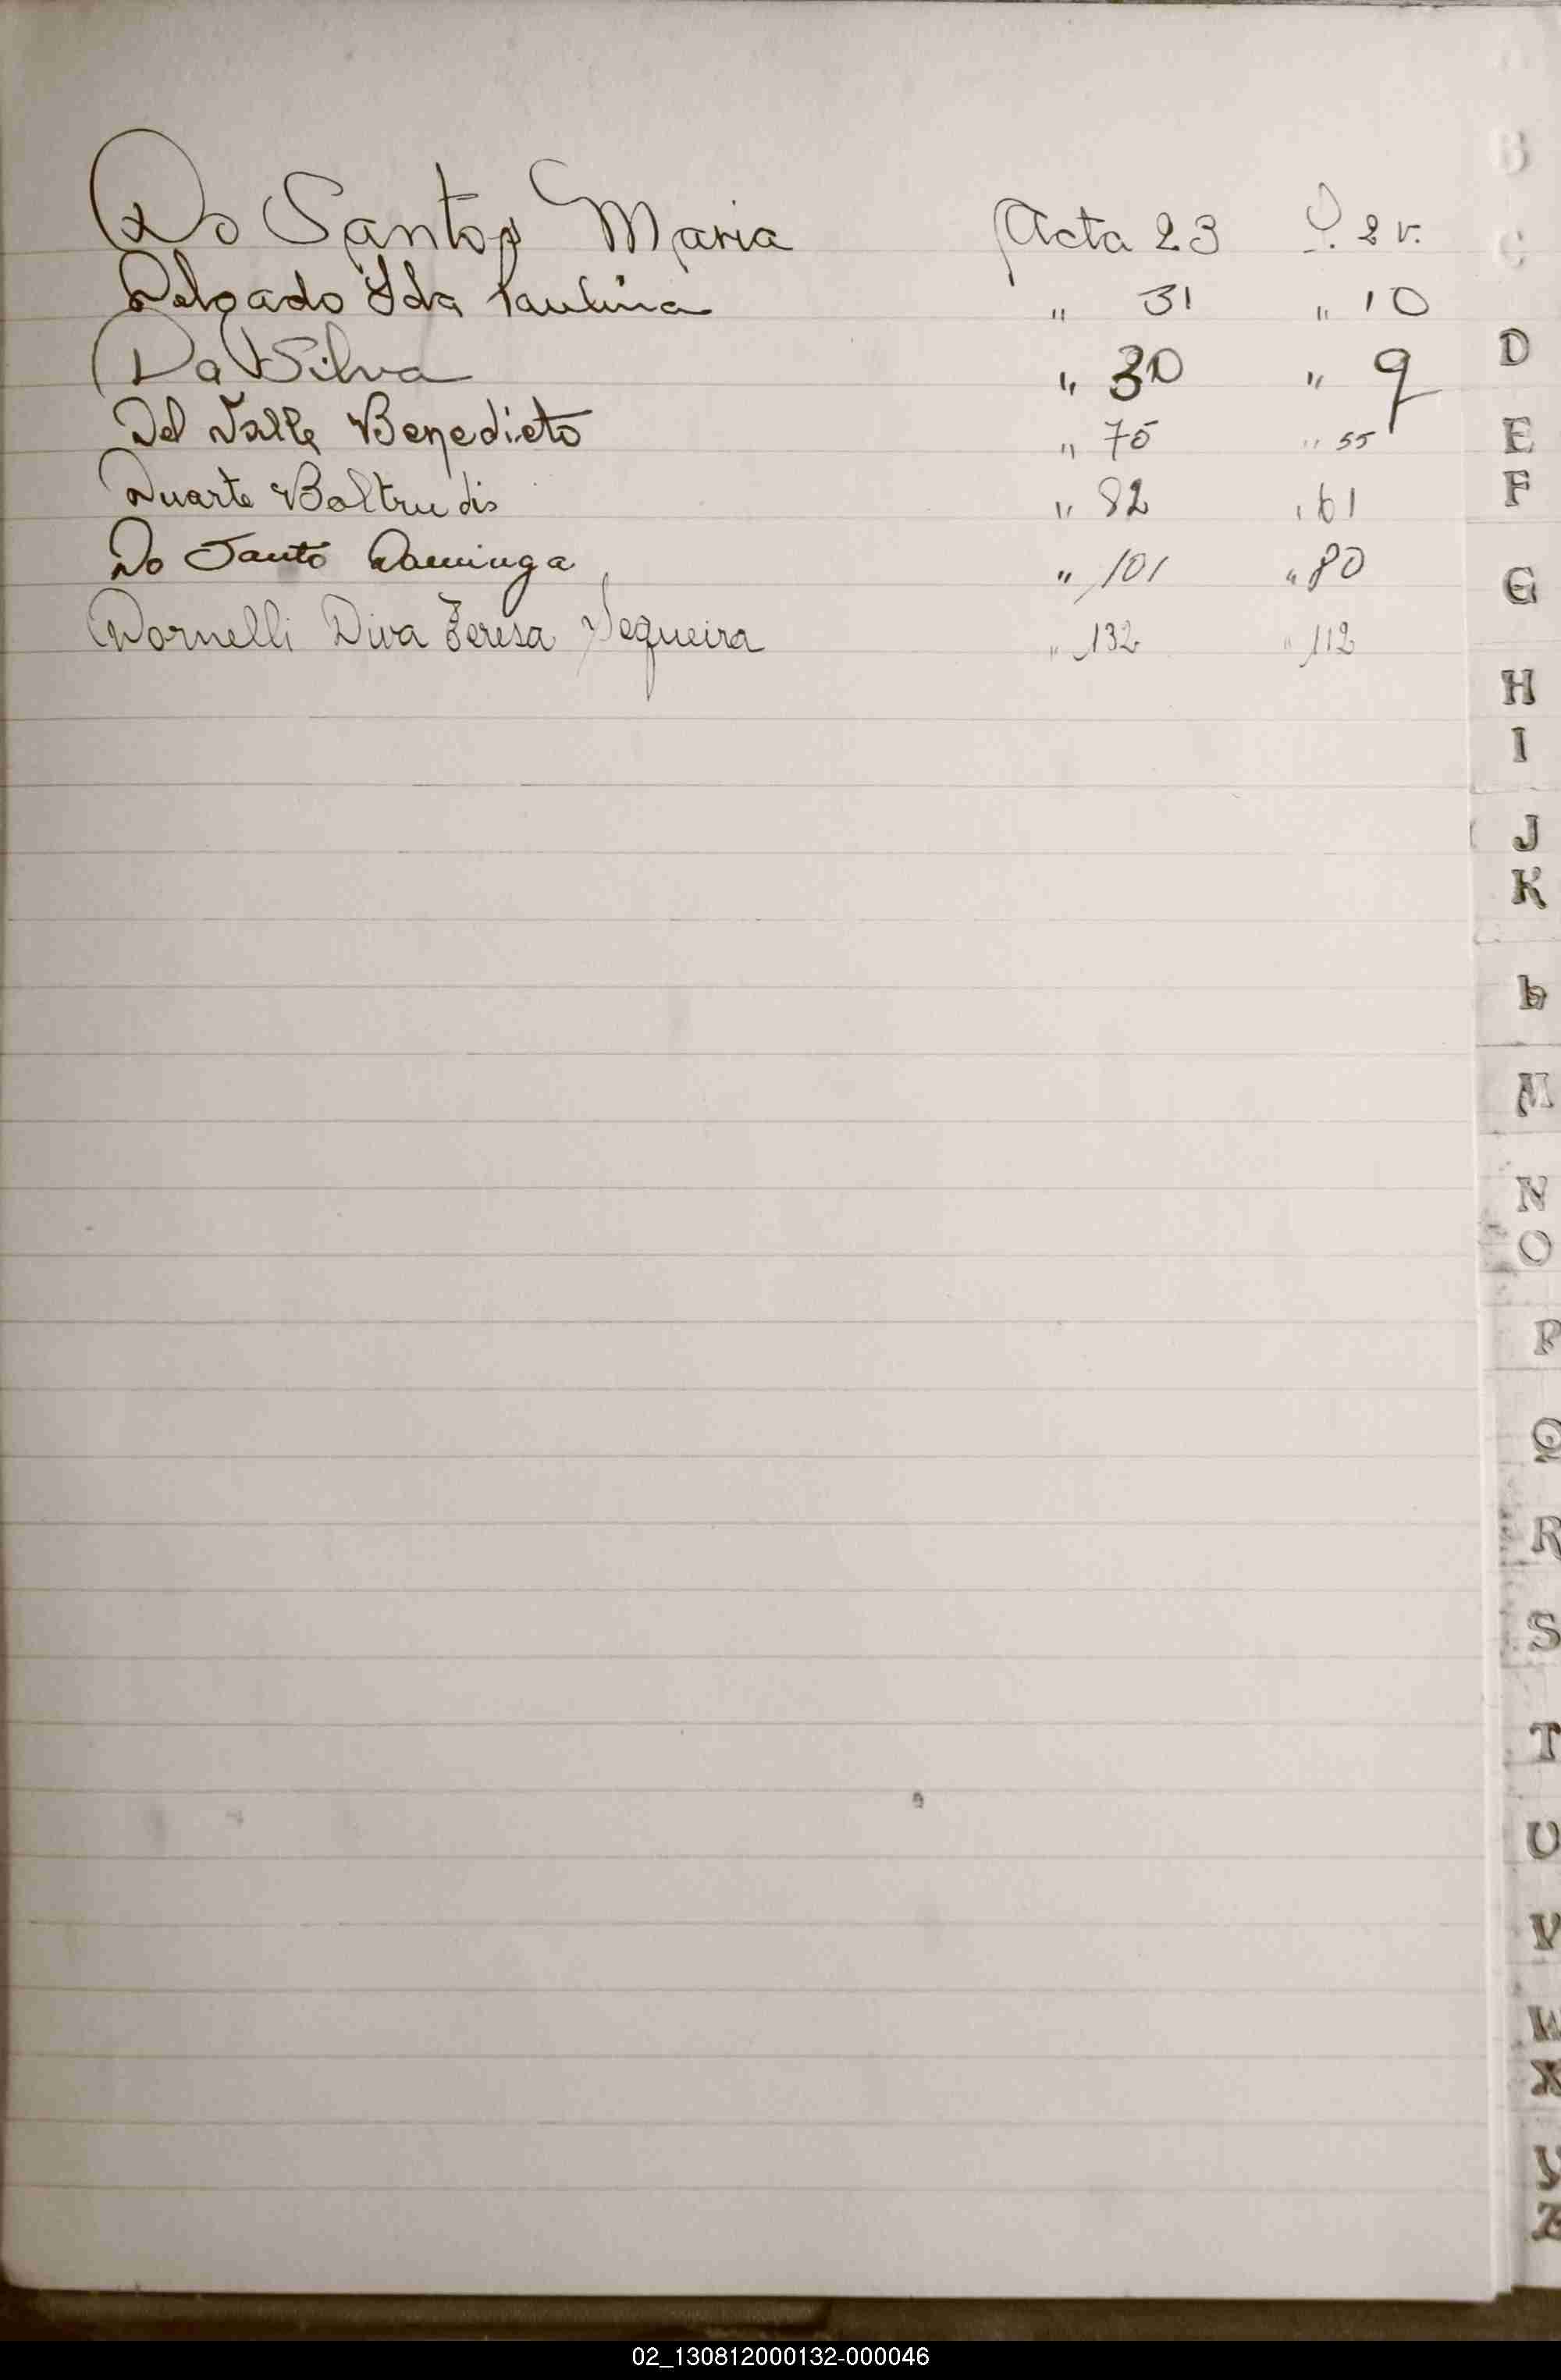 Do Santos Maria Acta 23 O. 2 v.
Delgado Ida Paulina " 31 " 10
Da Silva " 30 " 9
Del Valle Benedicto " 75 " 55
Duarte Baltrudis " 82 " 61
Do Santo Dominga " 101 " 80
Dornelli Diva Teresa Sequeira " 132 " 112
B
C
D
E
F
G
H
I
J
K
L
M
N
O
P
Q
R
S
T
U
V
W
X
Y
Z
02_130812000132-000046